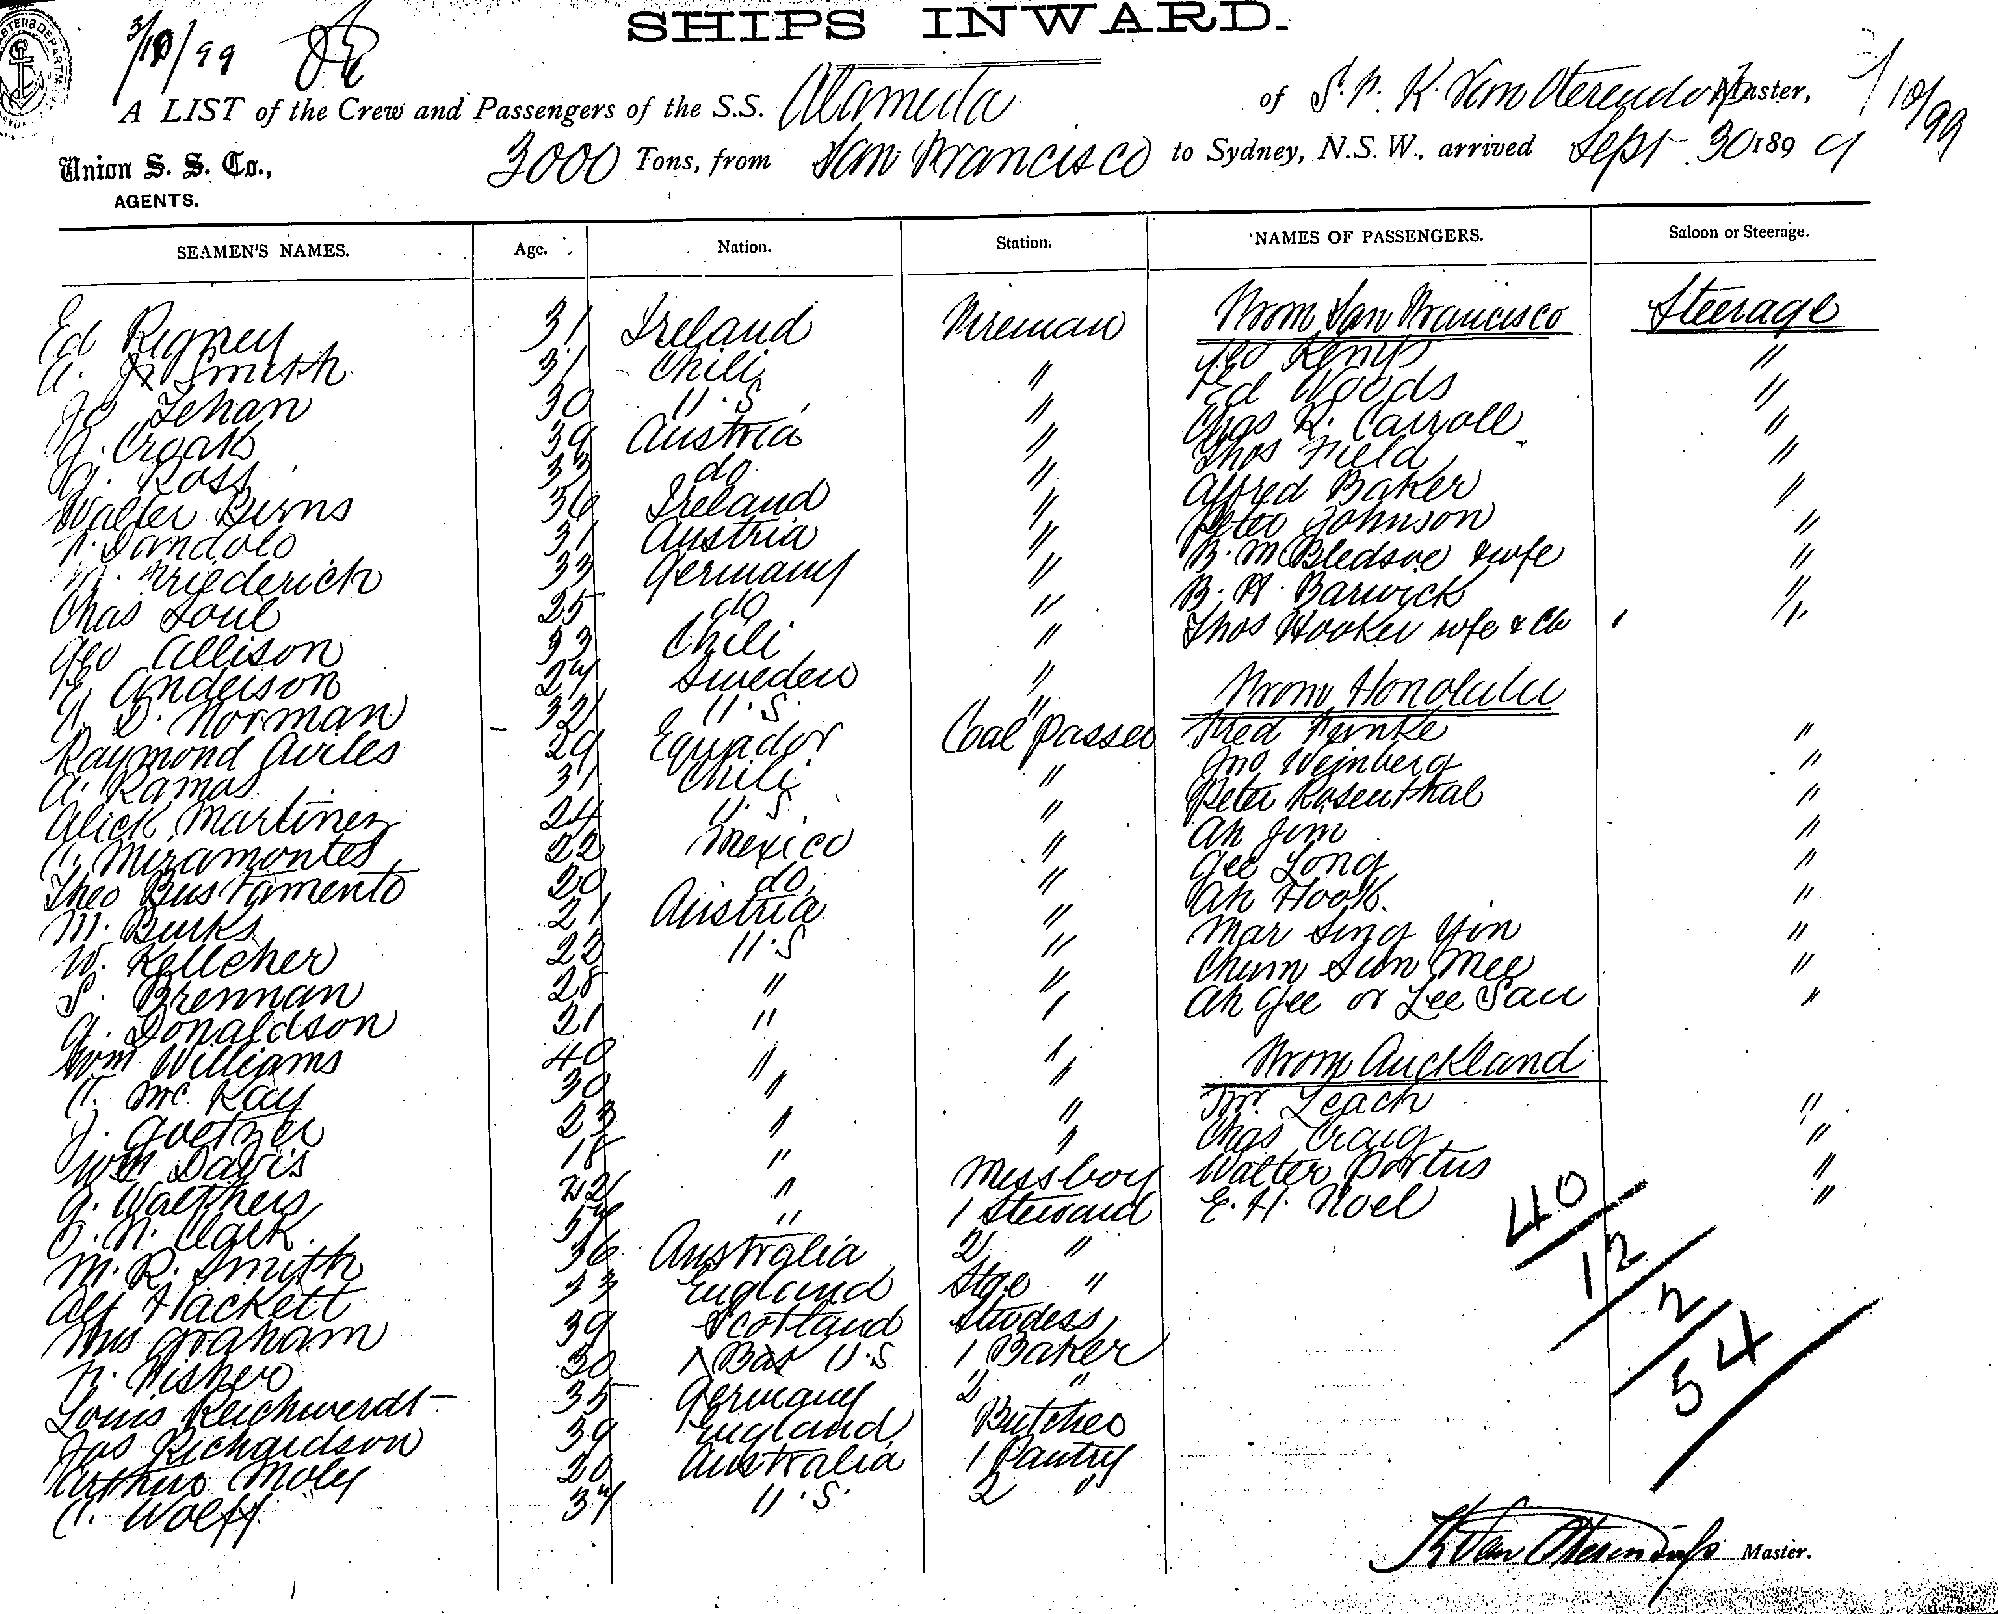 SHIPS INWARD.
3/10/99
A LIST of the Crew and Passengers of the S.S. Alameda of S.F. K. Van Oterendorp Master, 3/10/99
Union S. S. Co., 3000 Tons, from San Francisco to Sydney, N.S.W., arrived Sept 30 1899
AGENTS.
SEAMEN'S NAMES. Age. Nation. Station. NAMES OF PASSENGERS. Saloon or Steerage.
Ed Rigney 31 Ireland Fireman From San Francisco Steerage
A. Jr Smith 31 Chili " Geo Kemp "
Jo Lehan 30 U.S. " Ed Woods "
G. Croak 39 Austria " Chas K. Carroll "
G. Ross 33 do " Thos Field "
Walter Burns 36 Ireland " Alfred Baker "
F. Dandolo 31 Austria " Peter Johnson "
M. Friederick 33 Germany " B. M Bledsoe & wfe "
Chas Soul 25 do " B. H. Barwick "
Geo Allison 33 Chili " Thos Hooker wfe & Ch "
E. Anderson 24 Sweden "
F. D. Norman 32 U.S. " From Honolulu
Raymond Aviles 29 Equador Coal Passer Fred Fernke "
A. Ramas 31 Chili " Jno Weinberg "
Alick Martinez 24 U.S " Peter Rosenthal "
C. Miramontes 22 Mexico " Ah Jim "
Theo Bustamento 20 do " Gee Long "
M. Burks 21 Austria " Ah Hook. "
W. Kelleher 22 U.S " Mar Sing Yin "
S. Brennan 28 " " Chum Sun Mee "
A. Donaldson 21 " " Ah Gee or Lee Sau "
Wm Williams 40 " "
C. McKay 30 " " From Auckland
J. Goetzer 23 " " Mr. Leach "
Wm Davis 18 " " Chas Craig "
A. Walthers 22 " Messboy Walter Portus "
C. N. Clark 54 " 1 Steward E. H. Noel "
M. R. Smith 36 Australia 2 "
Alf Hackett 33 England Stge "
Mrs Graham 39 Scotland Stwdess
F. Fisher 30 U.S 1 Baker
Louis Reichwerdt 35 Germany 2 "
Jas Richardson 39 England Butcher
Arthur Moly 20 Australia 1 Pantry
C. Wolff 34 U.S. 2 "
40
12
2
54
K Van Oterendorp Master.